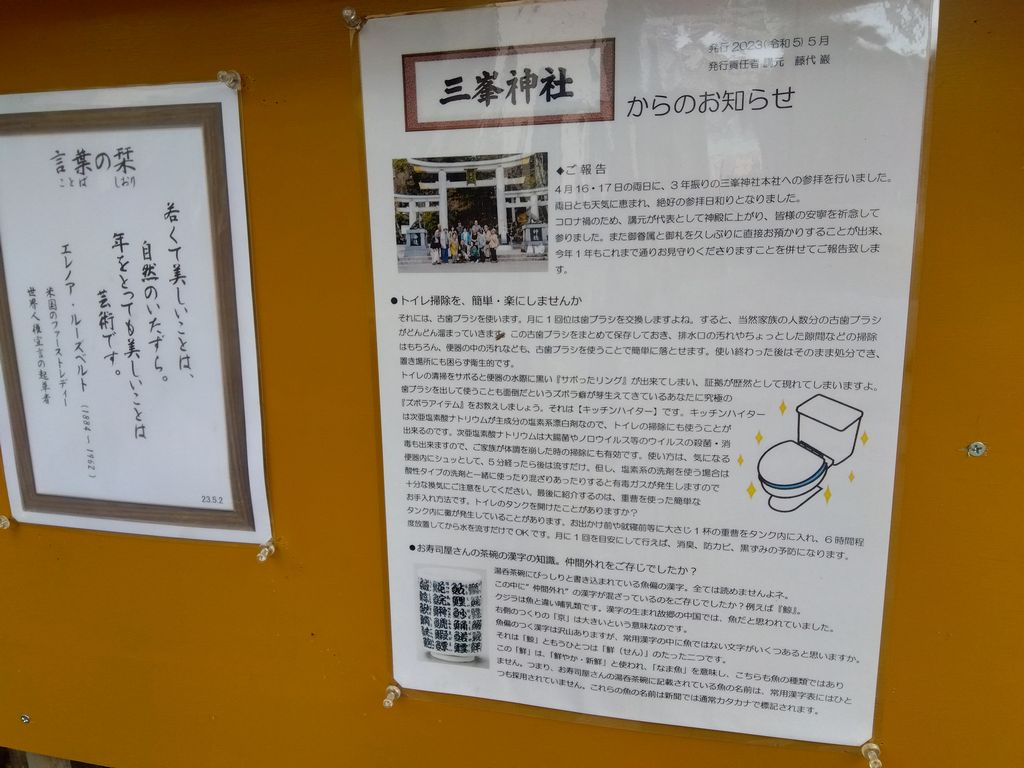 言葉の栞
ことば しおり
若くて美しいことは、
自然のいたずら。
年をとっても美しいことは
芸術です。
エレノア・ルーズベルト (1884〜1962)
米国のファーストレディー
世界人権宣言の起草者
23.5.2
発行 2023(令和5)5月
発行責任者 講元 藤代 巌
三峯神社
からのお知らせ
◆ご報告
4月16・17日の両日に、3年振りの三峯神社本社への参拝を行いました。
両日とも天気に恵まれ、絶好の参拝日和りとなりました。
コロナ禍のため、講元が代表として神殿に上がり、皆様の安寧を祈念して
参りました。また御眷属と御札を久しぶりに直接お預かりすることが出来、
今年1年もこれまで通りお見守りくださりますことを併せてご報告致しま
す。
●トイレ掃除を、簡単・楽にしませんか
それには、古歯ブラシを使います。月に1回位は歯ブラシを交換しますよね。すると、当然家族の人数分の古歯ブラシ
がどんどん溜まっていきます。この古歯ブラシをまとめて保存しておき、排水口の汚れやちょっとした隙間などの掃除
はもちろん、便器の中の汚れなども、古歯ブラシを使うことで簡単に落とせます。使い終わった後はそのまま処分でき、
置き場所にも困らず衛生的です。
トイレの清掃をサボると便器の水際に黒い『サボったリング』が出来てしまい、証拠が歴然として現れてしまいますよ。
歯ブラシを出して使うことも面倒だというズボラ癖が芽生えてきているあなたに究極の
『ズボラアイテム』をお教えしましょう。それは【キッチンハイター】です。キッチンハイター
は次亜塩素酸ナトリウムが主成分の塩素系漂白剤なので、トイレの掃除にも使うことが
出来るのです。次亜塩素酸ナトリウムは大腸菌やノロウイルス等のウイルスの殺菌・消
毒も出来ますので、ご家族が体調を崩した時の掃除にも有効です。使い方は、気になる
便器内にシュッとして、5分経ったら後は流すだけ。但し、塩素系の洗剤を使う場合は
酸性タイプの洗剤と一緒に使ったり混ざりあったりすると有毒ガスが発生しますので
十分な換気にご注意をしてください。最後に紹介するのは、重曹を使った簡単な
お手入れ方法です。トイレのタンクを開けたことがありますか?
タンク内に黴が発生していることがあります。お出かけ前や就寝前等に大さじ1杯の重曹をタンク内に入れ、6時間程
度放置してから水を流すだけでOKです。月に1回を目安にして行えば、消臭、防カビ、黒ずみの予防になります。
●お寿司屋さんの茶碗の漢字の知識。仲間外れをご存じでしたか?
湯呑茶碗にびっしりと書き込まれている魚偏の漢字。全ては読めませんよネ。
この中に"仲間外れ"の漢字が混ざっているのをご存じでしたか?例えば『鯨』。
クジラは魚と違い哺乳類です。漢字の生まれ故郷の中国では、魚だと思われていました。
右側のつくりの「京」は大きいという意味なのです。
魚偏のつく漢字は沢山ありますが、常用漢字の中に魚ではない文字がいくつあると思いますか。
それは「鯨」ともうひとつは「鮮(せん)」のたった二つです。
この「鮮」は、「鮮やか・新鮮」と使われ、「なま魚」を意味し、こちらも魚の種類ではあり
ません。つまり、お寿司屋さんの湯呑茶碗に記載されている魚の名前は、常用漢字表にはひと
つも採用されていません。これらの魚の名前は新聞では通常カタカナで標記されます。